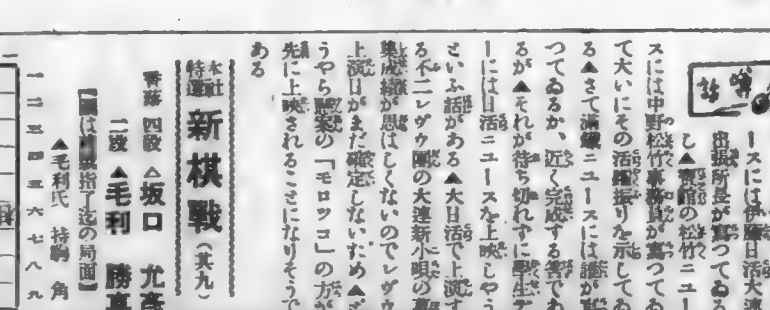 噂話
ースには伊藤日活大連
出張所長が寫つてゐる
し▲の松竹ニユー
スには中野松竹事務員が寫つてゐ
て大いにその活躍振りを示してゐ
る▲さて滿鐵ニユースには誰が
つてゐるか、近く完成する筈であ
るが▲それが待ち切れずに
ーには日活ニユースを上映しやう
といふ話がある▲大日活で上演す
る不二レヴウ團の大連新小唄の
集成績が思はしくないのでレヴウ
上演日がまだ確定しないため▲
うやら懸案の「モロツコ」の方が
先に上映されることになりそうで
ある
本社特選 新棋戰(其九)
香落 四段 △坂口 允彦
二段 ▲毛利 勝
は指了迄の局面
▲毛利氏 持駒 角
一二三四五六七八九